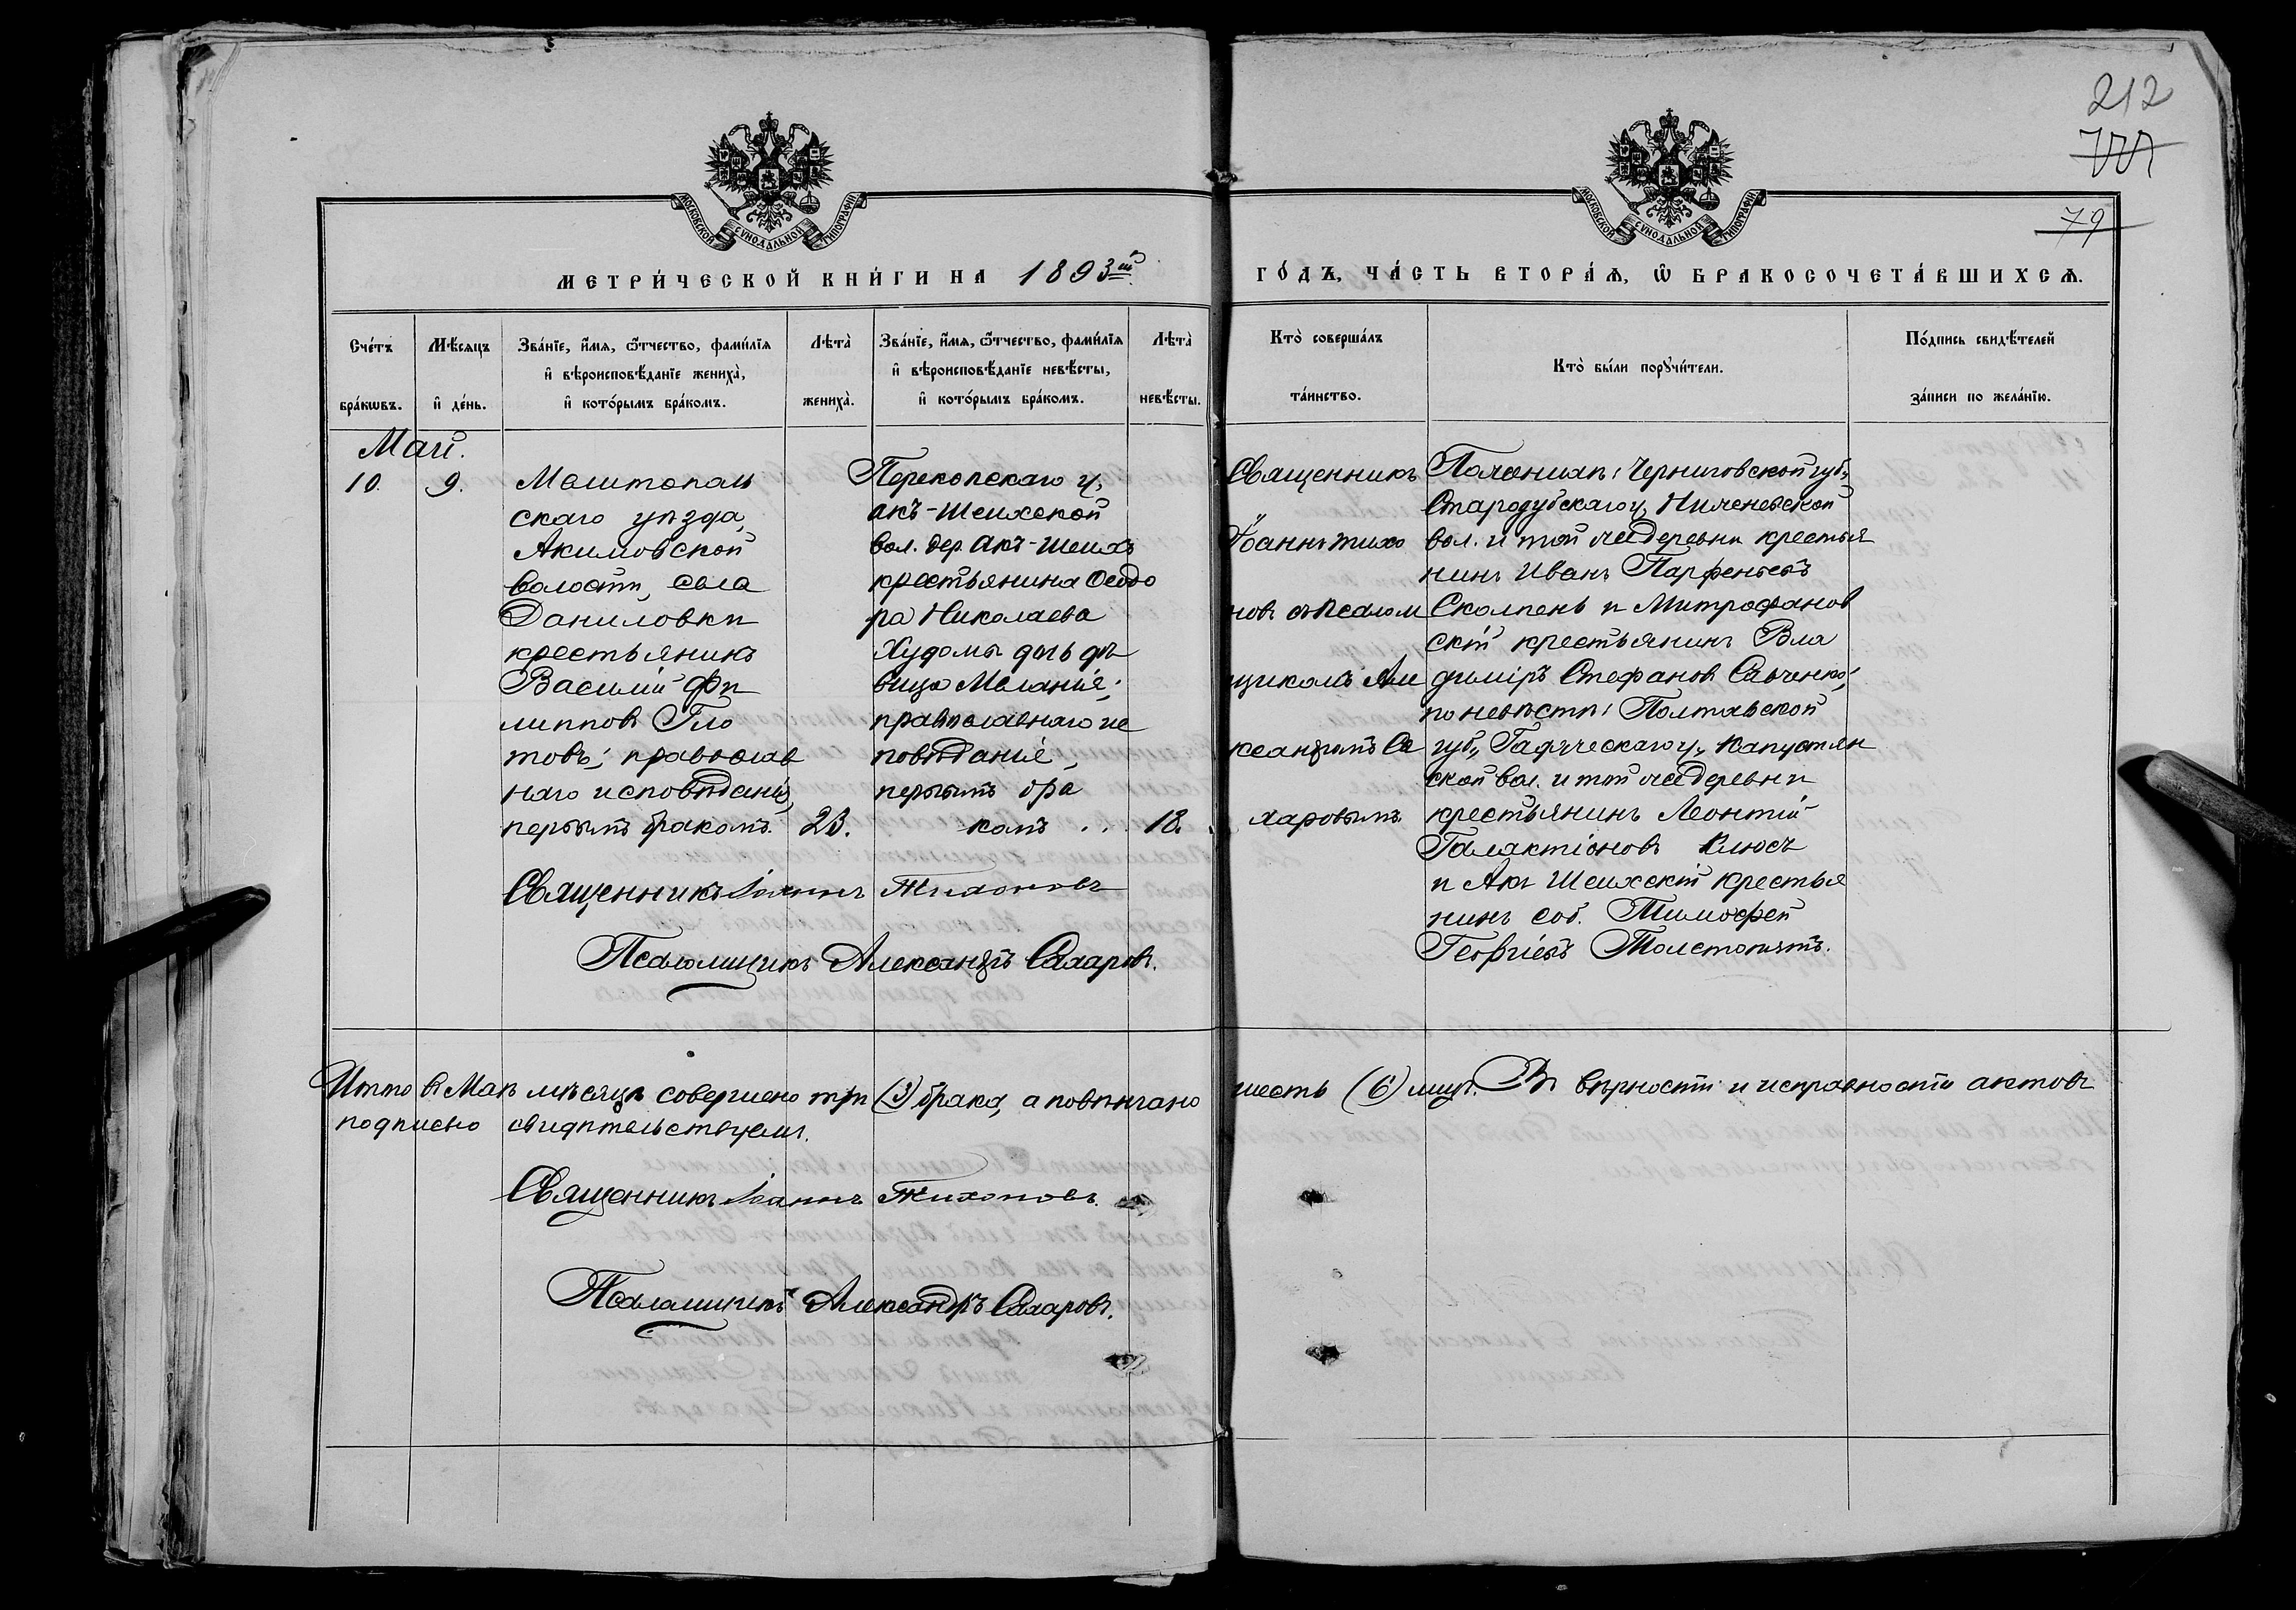 212
79
МОСКОВСКОЙ СѴНОДАЛЬНОЙ ТИПОГРАФІИ
МОСКОВСКОЙ СѴНОДАЛЬНОЙ ТИПОГРАФІИ
МЕТРИ́ЧЕСКОЙ КНИ́ГИ НА 1893й
ГО́ДЪ, ЧА́СТЬ ВТОРА́Ѧ, Ѿ БРАКОСОЧЕТА́ВШИХСѦ.
Сче́тъ бра́кѡвъ.
Мѣ́сѧцъ и҆ де́нь.
Зва́нїе, и҆́мѧ, ѻ҆́тчество, фами́лїѧ
и҆ вѣроисповѣ́данїе жениха̀,
и҆ кото́рымъ бра́комъ.
Лѣта̀ жениха̀.
Зва́нїе, и҆́мѧ, ѻ҆́тчество, фами́лїѧ
и҆ вѣроисповѣ́данїе невѣ́сты,
и҆ кото́рымъ бра́комъ.
Лѣта̀ невѣ́сты.
Кто̀ соверша́лъ
та́инство.
Кто̀ бы́ли порꙋчи́тели.
По́дпись свидѣ́телей
за́писи по жела́нїю.
Май.
10. 9.
Мелитополь
скаго уѣзда,
Акимовской
волости, села
Даниловки
крестьянинъ
Василій Фи
липповъ Гло
товъ; православ
наго исповѣданія,
первымъ бракомъ. 23.
Перекопскаго у.
Акъ-Шеихской
вол. дер. Акъ-Шеихъ
крестьянина Ѳеодо
ра Николаева
Худомы дочь дѣ
вица Меланія;
православнаго ис
повѣданія,
первымъ бра
комъ . . . 18.
Священникъ
Іоаннъ Тихо
новъ съ псалом
щикомъ Але
ксандромъ Са
харовымъ
По женихѣ: Черниговской губ.,
Стародубскаго у.
вол. и той же деревни крестья
нинъ Иванъ Парфеньевъ
и Митрофанов
скій крестьянинъ Вла
диміръ Стефановъ Савченко;
по невѣстѣ: Полтавской
губ., Гадяческаго у. Капустян
ской вол. и той же деревни
крестьянинъ Леонтій
Галактіоновъ Клюсъ
и Акъ Шеихскій крестья
нинъ соб. Тимоѳей
Георгіевъ Толстопятъ.
Священникъ Іоаннъ Тихоновъ
Псаломщикъ Александръ Сахаровъ.
Итого въ Маѣ мѣсяцѣ совершено три (3) брака, а повѣнчано шесть (6) лицъ. Въ вѣрности и исправности актовъ
подписью свидѣтельствуемъ.
Священникъ Іоаннъ Тихоновъ.
Псаломщикъ Александръ Сахаровъ.